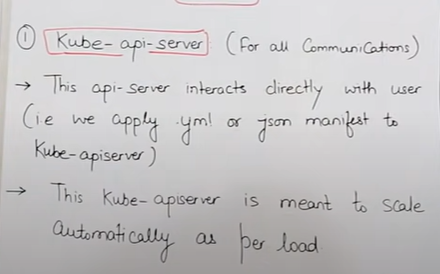 ① Kube-api-server (For all Communications)
→ This api-server interacts directly with user
(i.e we apply .yml or json manifest to
Kube-apiserver)
→ This Kube-apiserver is meant to scale
automatically as per load